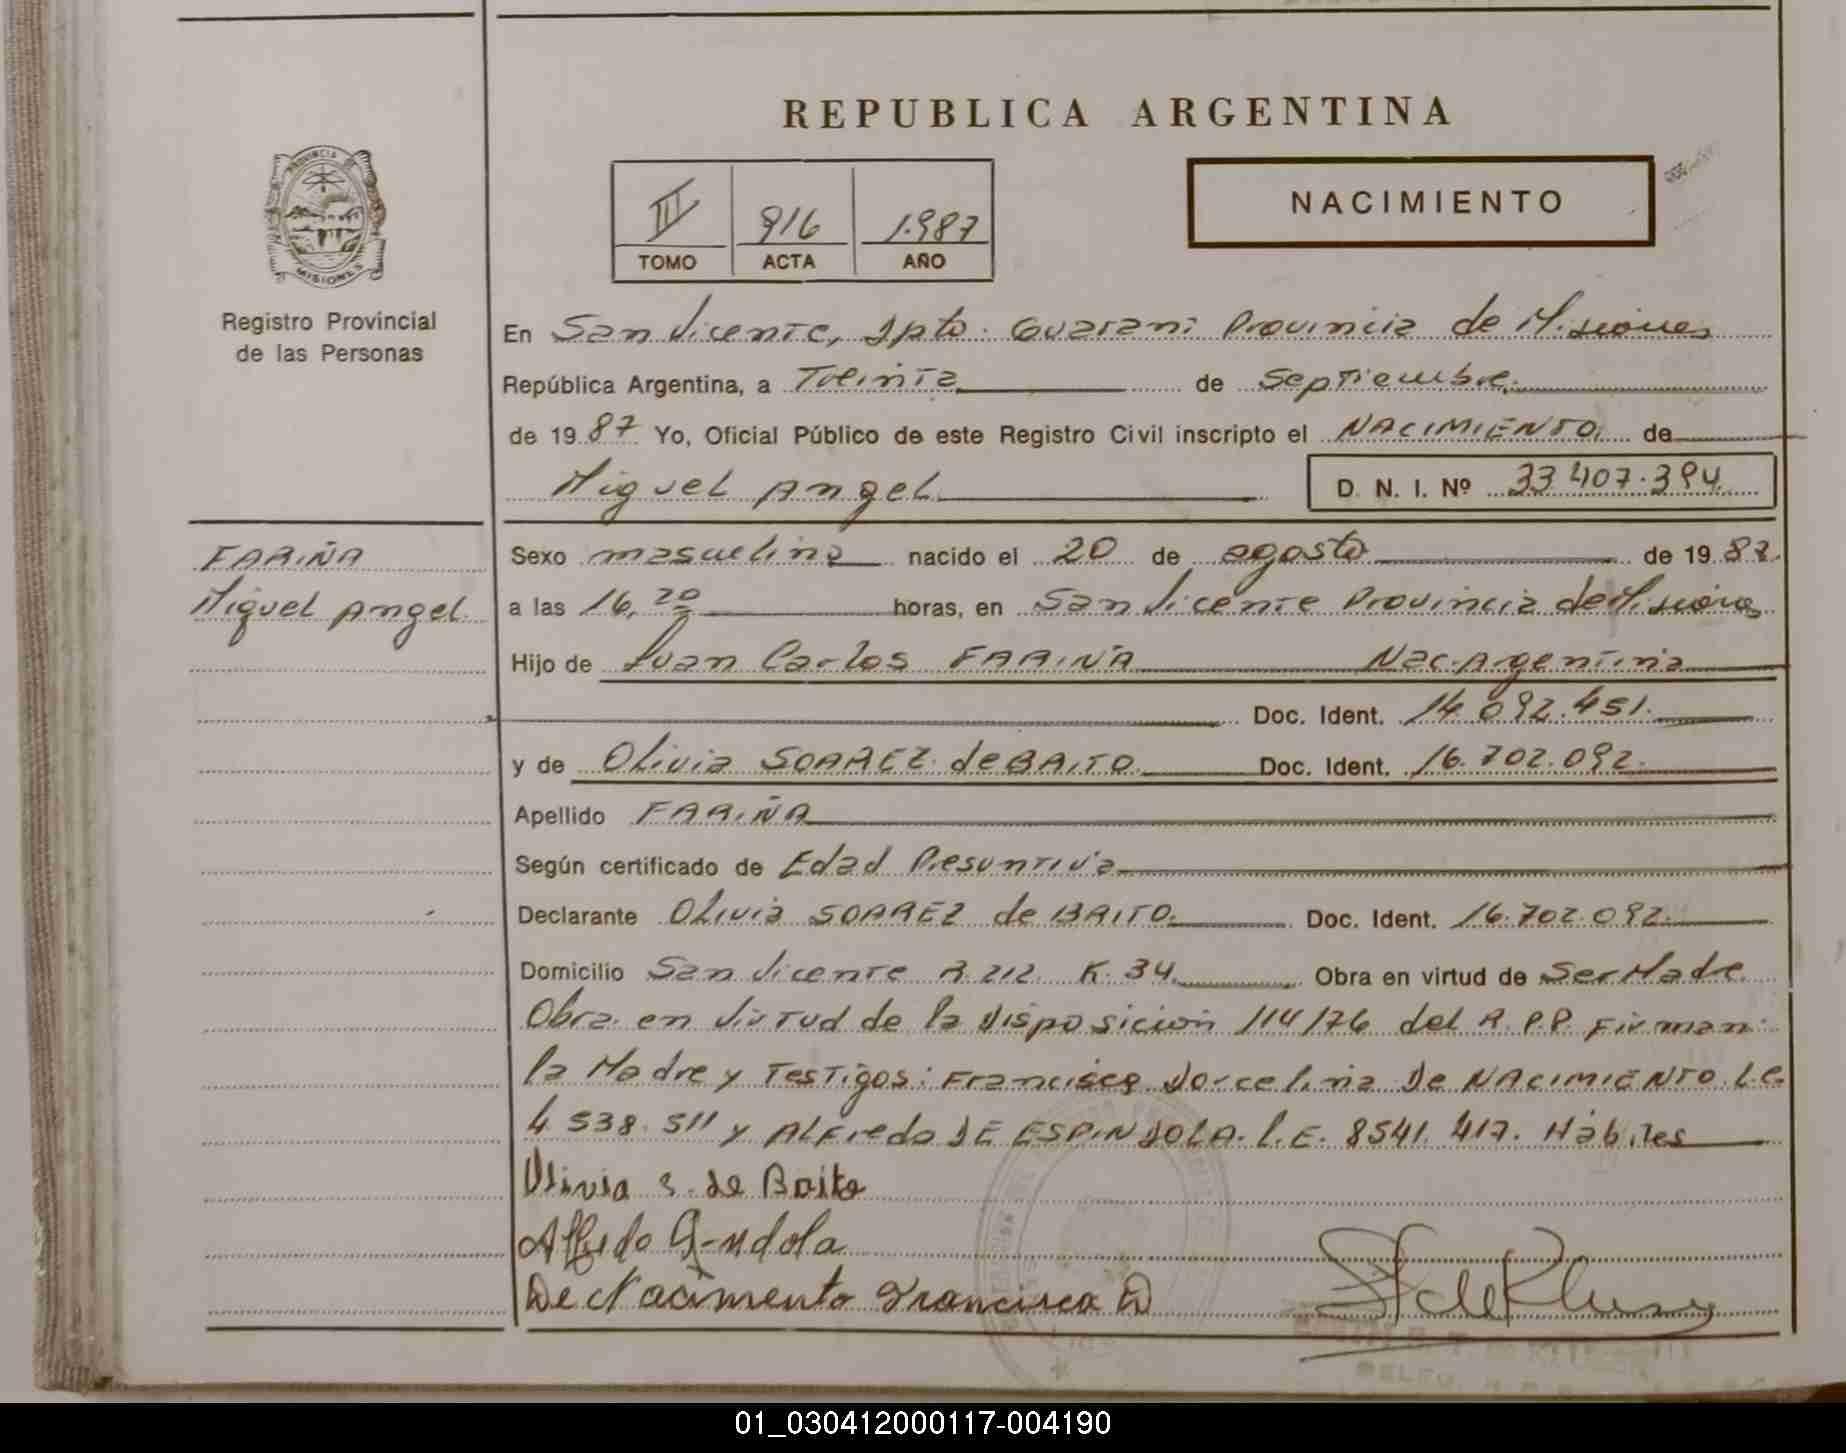 REPUBLICA ARGENTINA
PROVINCIA DE
MISIONES
Registro Provincial
de las Personas
III 916 1.987
TOMO ACTA AÑO
NACIMIENTO
En San Vicente, Dpto. Guarani Provincia de Misiones
República Argentina, a Treinta de Septiembre.
de 19 87 Yo, Oficial Público de este Registro Civil inscripto el NACIMIENTO de
Miguel Angel
D. N. I. Nº 33.407.394.
FARIÑA
Miguel Angel.
Sexo masculino nacido el 20 de agosto de 19 87.
a las 16,20 horas, en San Vicente Provincia de Misiones
Hijo de Juan Carlos FARIÑA Nac. Argentina
Doc. Ident. 14.092.451.
y de Olivia SOAREZ de BAITO Doc. Ident. 16.702.092.
Apellido FARIÑA
Según certificado de Edad Presuntiva
Declarante Olivia SOAREZ de BAITO. Doc. Ident. 16.702.092.
Domicilio San Vicente R. 212. K. 34. Obra en virtud de Ser Madre
Obra en virtud de la Disposición 114/76 del R.P.P. Firman:
la Madre y Testigos: Francisca Dorcelina De NACIMIENTO L.C.
4.538.511 y Alfredo DE ESPINDOLA. L.E. 8541.417. Hábiles
Olivia S. de Baito
Alfredo
De Nacimento Francisca D
01_030412000117-004190